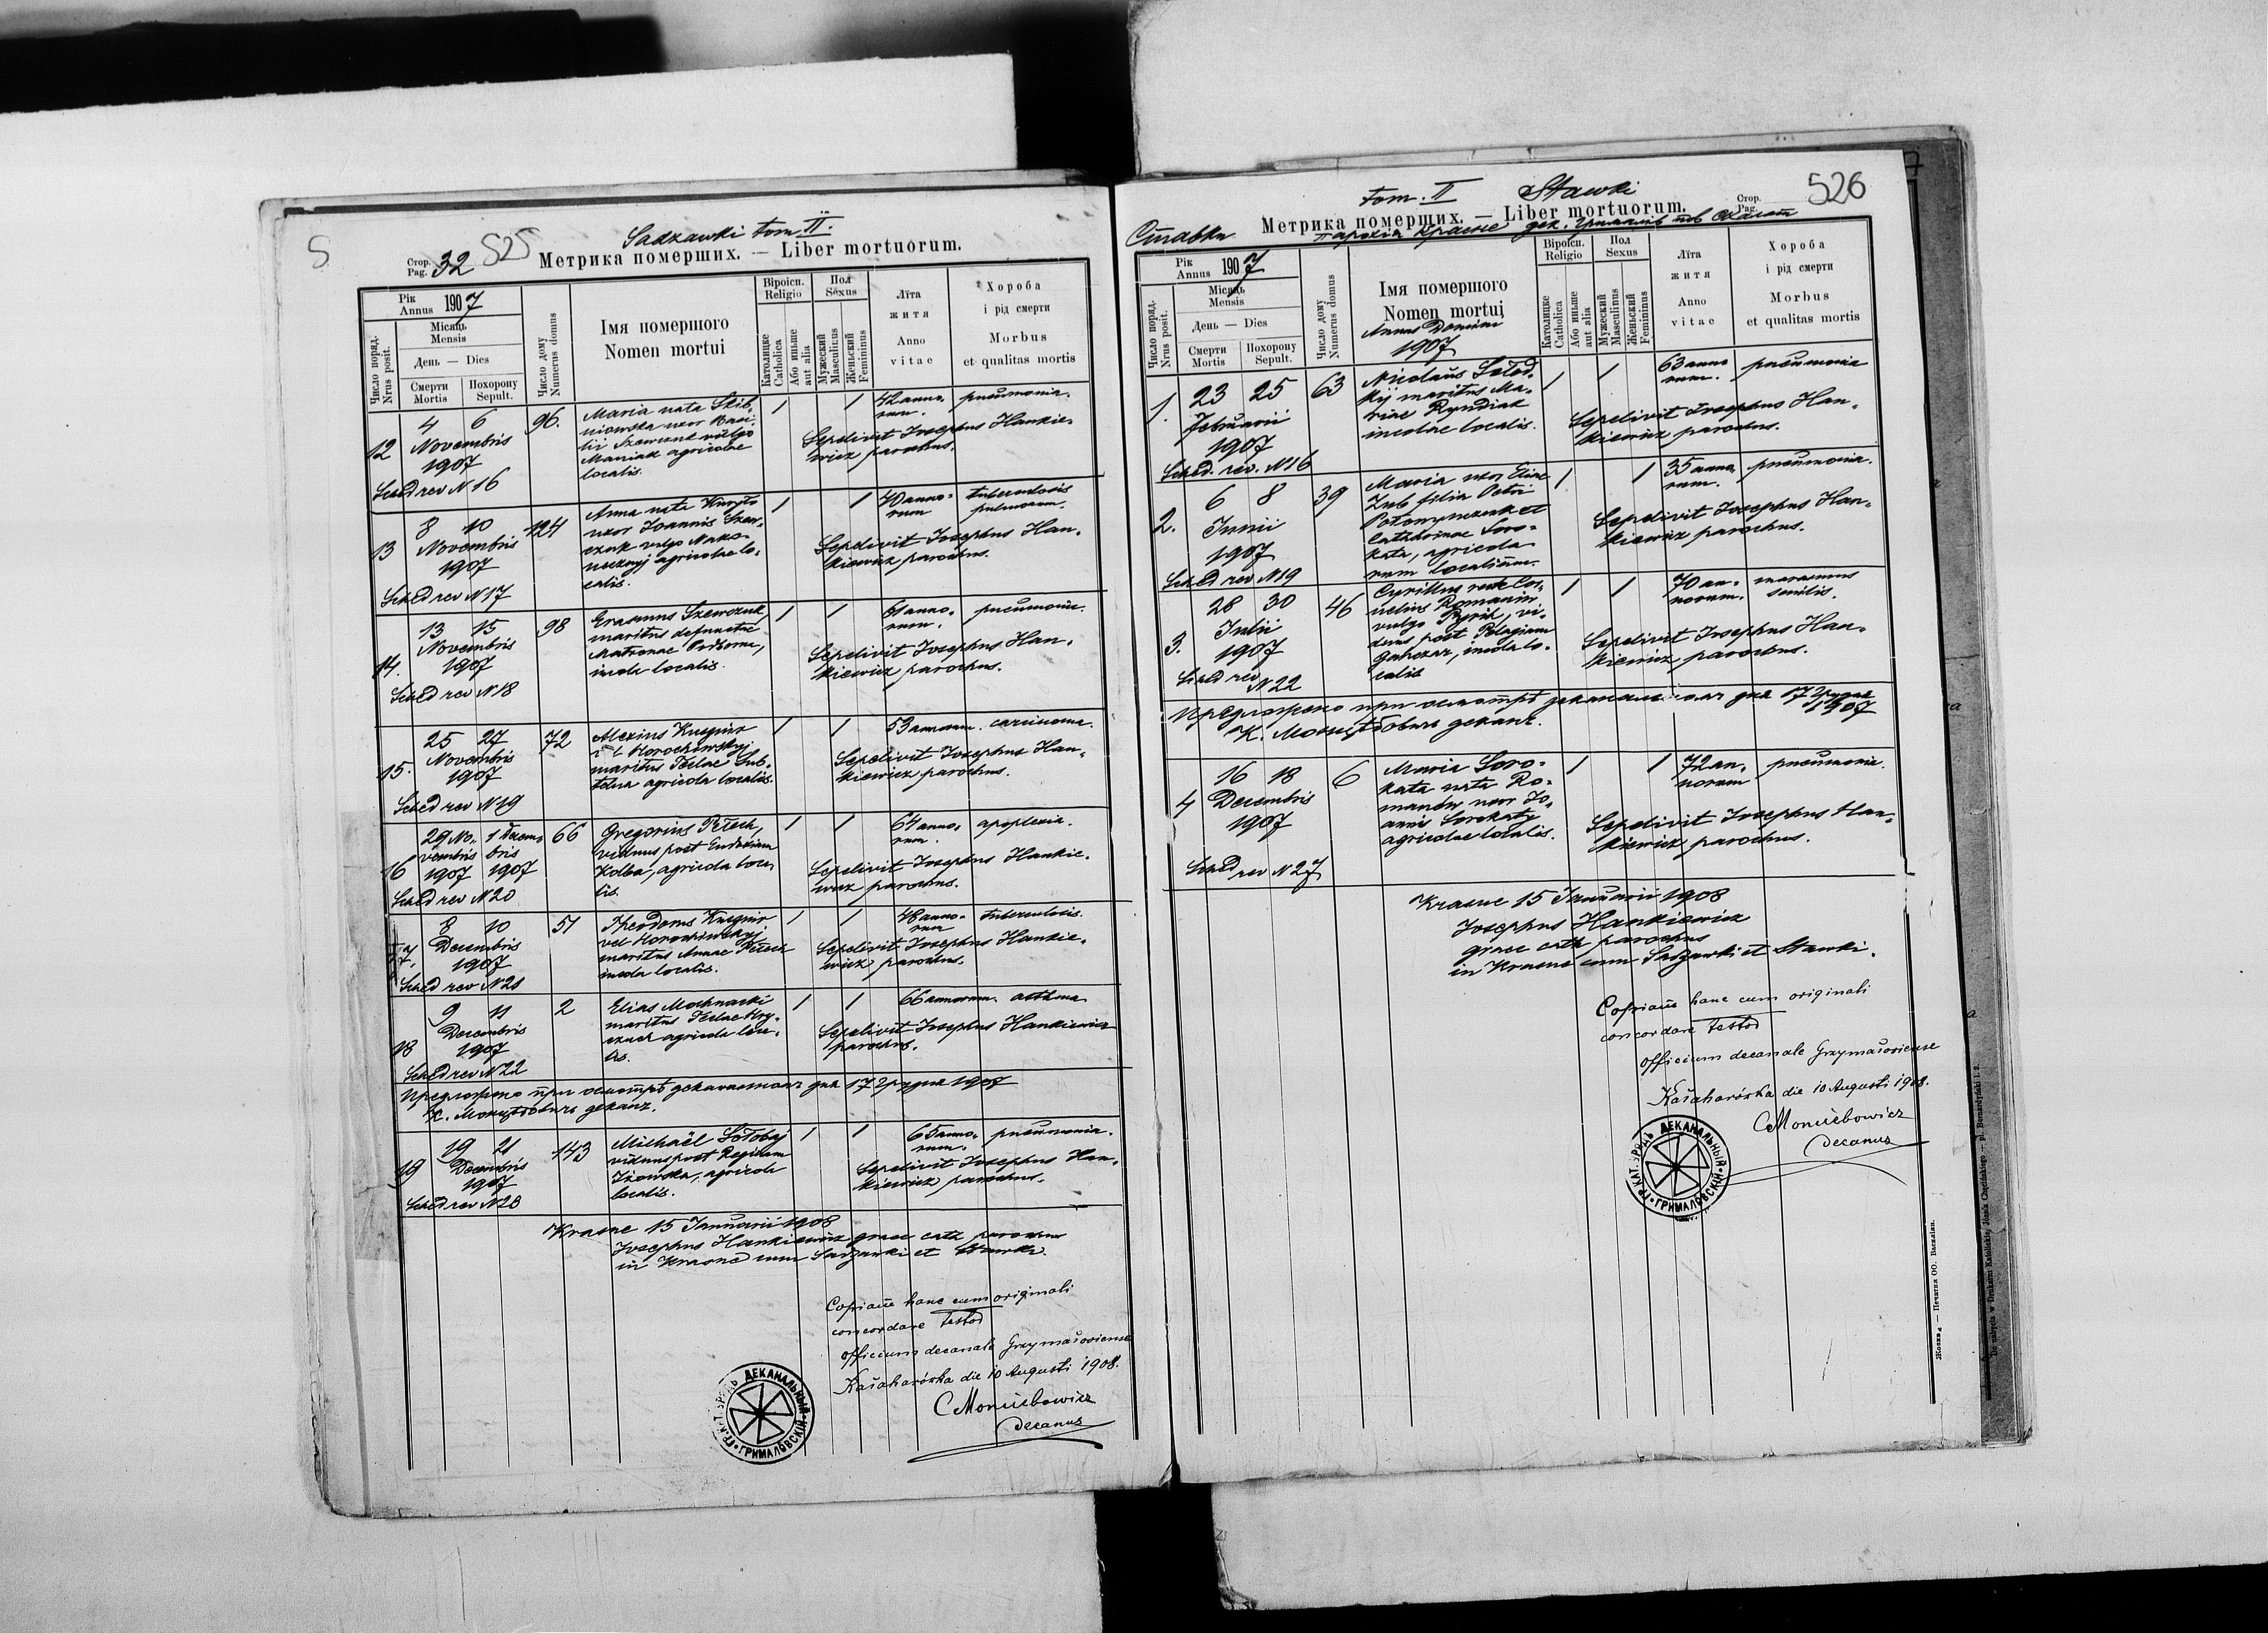 S
Стор. Pag. 32
525
Sadzawki tom II.
Метрика померших. — Liber mortuorum.
Число поряд. Nrus posit.
Рік Annus 1907
Місяць Mensis
День — Dies
Смерти Mortis
Похорону Sepult.
Число дому Numerus domus
Імя помершого
Nomen mortui
Віроісп. Religio
Католицке Catholica
Або иньше aut alia
Пол Sexus
Мужеский Masculinus
Женьский Femininus
Літа житя
Anno vitae
Хороба і рід смерти
Morbus et qualitas mortis
12
4 6
Novembris
1907
Sched rev N 16
96.
Maria nata
uxor Basi-
lii Szewczuk vulgo
Maniak agricolae
localis.
1 1
42 anno-
rum.
pneumonia.
Sepelivit Josephus Hankie-
wicz parochus.
13
8 10
Novembris
1907
Sched rev N 17
124
Anna nata
uxor Joannis Szew-
czuk vulgo Nako-
necznyj agricolae lo-
calis.
1 1
40 anno-
rum
tuberculosis
pulmonum.
Sepelivit Josephus Han-
kiewicz parochus.
14.
13 15
Novembris
1907
Sched rev N 18
98
Erasmus Szewczuk
maritus defunctae
Matronae
incola localis.
1 1
61 anno-
rum.
pneumonia.
Sepelivit Josephus Han-
kiewicz parochus.
15.
25 27
Novembris
1907
Sched rev N 19
72
Alexius Kusznir
Horochiwskyj
maritus Teclae Sub-
telna agricola localis.
1 1
53 annorum.
carcinoma.
Sepelivit Josephus Han-
kiewicz parochus.
16
29 No- 1 Decem-
vembris bris
1907 1907
Sched rev N 20
66
Gregorius Petech,
viduus post Eudoxiam
Kolba, agricola loca-
lis.
1 1
64 anno-
rum.
apoplexia.
Sepelivit Josephus Hankie-
wicz parochus.
17.
8 10
Decembris
1907
Sched rev N 21
51
Theodorus Kusznir
vel Horochiwskyj
maritus Annae Petech
incola localis.
1 1
48 anno-
rum
tuberculosis.
Sepelivit Josephus Hankie-
wicz parochus.
18
9 11
Decembris
1907
Sched rev N 22
2
Elias Mochnacki
maritus Teclae Hry-
czuch agricola loca-
lis.
1 1
66 annorum.
asthma
Sepelivit Josephus Hankiewicz
parochus.
Предложено при осмотрѣ деканальномъ дня 17 грудня 1907
К. Монцѣбовичъ деканъ.
19
19 21
Decembris
1907
Sched rev N 28
143
Michaël Sołobaj
viduus post Reginam
Iżowska, agricola
localis.
1 1
65 anno-
rum.
pneumonia.
Sepelivit Josephus Han-
kiewicz parochus.
Krasne 15 Januarii 1908
Josephus Hankiewicz graec cath parochus
in Krasne cum Sadzawki et Stawki.
Copiam hanc cum originali
concordare testor
Officium decanale Grzymałoviense
Kałaharówka die 10 Augusti 1908.
CMoncibowicz
decanus
ГР. КАТ. УРЯДЪ ДЕКАНАЛЬНЫЙ ГРИМАЛОВСКІЙ
tom. II Stawki
Стор. Pag.
526
Ставки
Метрика померших. — Liber mortuorum.
парохія Красне дек. Грималів пов Скалат
Число поряд. Nrus posit.
Рік Annus 1907
Місяць Mensis
День — Dies
Смерти Mortis
Похорону Sepult.
Число дому Numerus domus
Імя помершого
Nomen mortui
Annus Domini
1907
Віроісп. Religio
Католицке Catholica
Або иньше aut alia
Пол Sexus
Мужеский Masculinus
Женьский Femininus
Літа житя
Anno vitae
Хороба і рід смерти
Morbus et qualitas mortis
1.
23 25
Februarii
1907
Sched. rev. N 16
63
Nicolaus
maritus Ma-
riae Ryndiak
incolae localis.
1 1
63 anno-
rum.
pneumonia
Sepelivit Josephus Han-
kiewicz parochus.
2.
6 8
Junii
1907
Sched rev N 19
39
Maria uxor Eliae
Zub filia Petri
et
Catharinae Soro-
kata, agricola-
rum localium.
1 1
35 anno-
rum.
pneumonia.
Sepelivit Josephus Han-
kiewicz parochus.
3.
28 30
Julii
1907
Sched rev
N 22
46
Cyrillus recte Cor-
nelius Romaniw
vulgo Pyrih, vi-
duus post Pelagiam
Gahczar, incola lo-
calis
1 1
70 an-
norum.
marasmus
senilis.
Sepelivit Josephus Han-
kiewicz parochus.
Предложено при осмотрѣ деканальномъ дня 17 грудня
1907
К. Монцѣбовичъ деканъ.
4
16 18
Decembris
1907
Sched rev N 27
6
Maria Soro-
kata nata Ro-
manów uxor Jo-
annis Sorokaty
agricolae localis.
1 1
72 an-
norum
pneumonia.
Sepelivit Josephus Han-
kiewicz parochus.
Krasne 15 Januarii 1908
Josephus Hankiewicz
graec cath parochus
in Krasne cum Sadzawki et Stawki.
Copiam hanc cum originali
concordare testor
Officium decanale Grzymałoviense
Kałaharówka die 10 Augusti 1908.
CMoncibowicz
decanus
ГР. КАТ. УРЯДЪ ДЕКАНАЛЬНЫЙ ГРИМАЛОВСКІЙ
Жовква — Печатня ОО. Василіян.